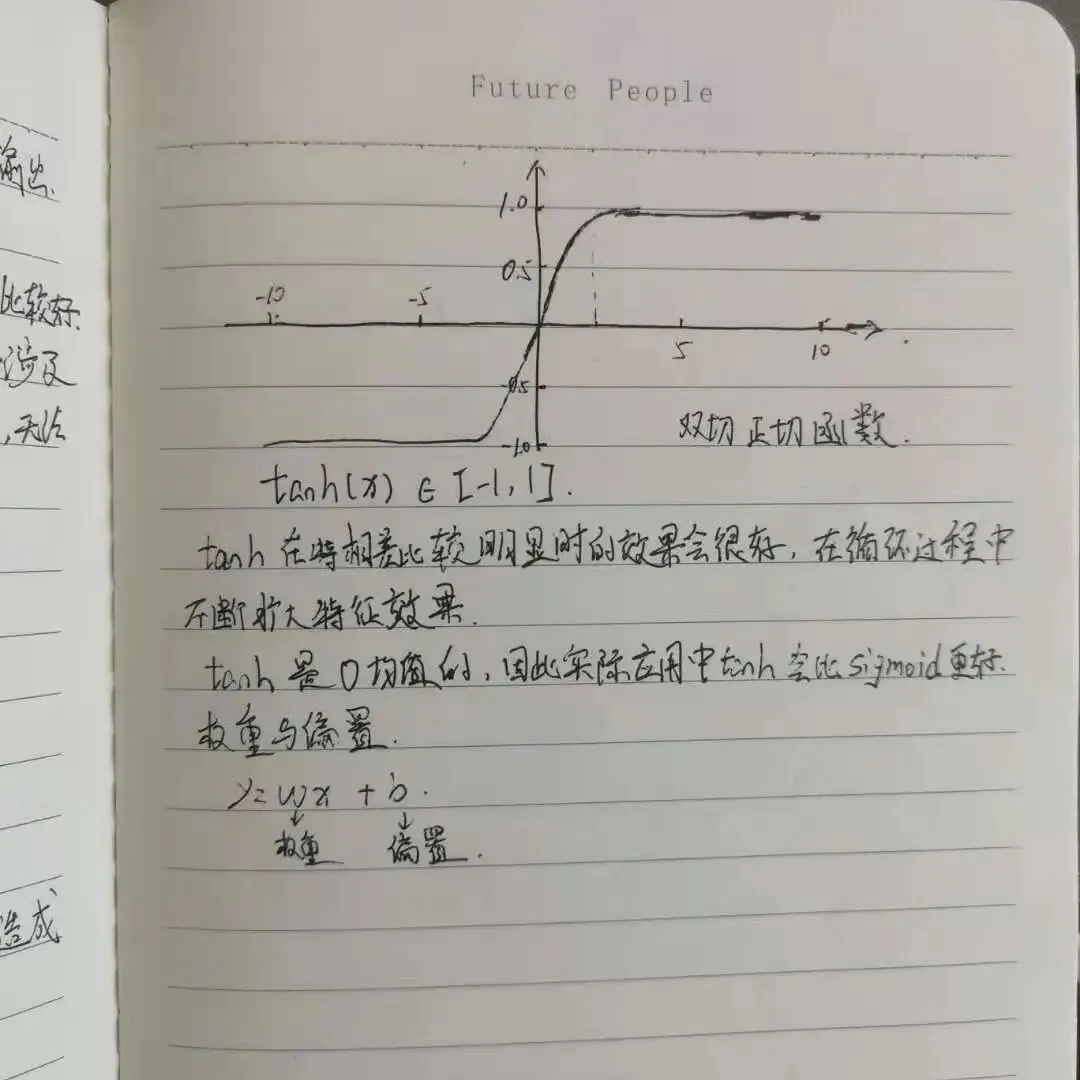 输出.
比较好.
涉及
,无法
造成
Future People
1.0
0.5
-10
-5
5
10
-0.5
-1.0
双切正切函数.
tanh(x) ∈ [-1,1].
tanh 在特相差比较明显时的效果会很好,在循环过程中
不断扩大特征效果.
tanh 是 0 均值的,因此实际应用中tanh 会比 sigmoid 更好.
权重与偏置.
y = wx + b.
↓ ↓
权重 偏置.